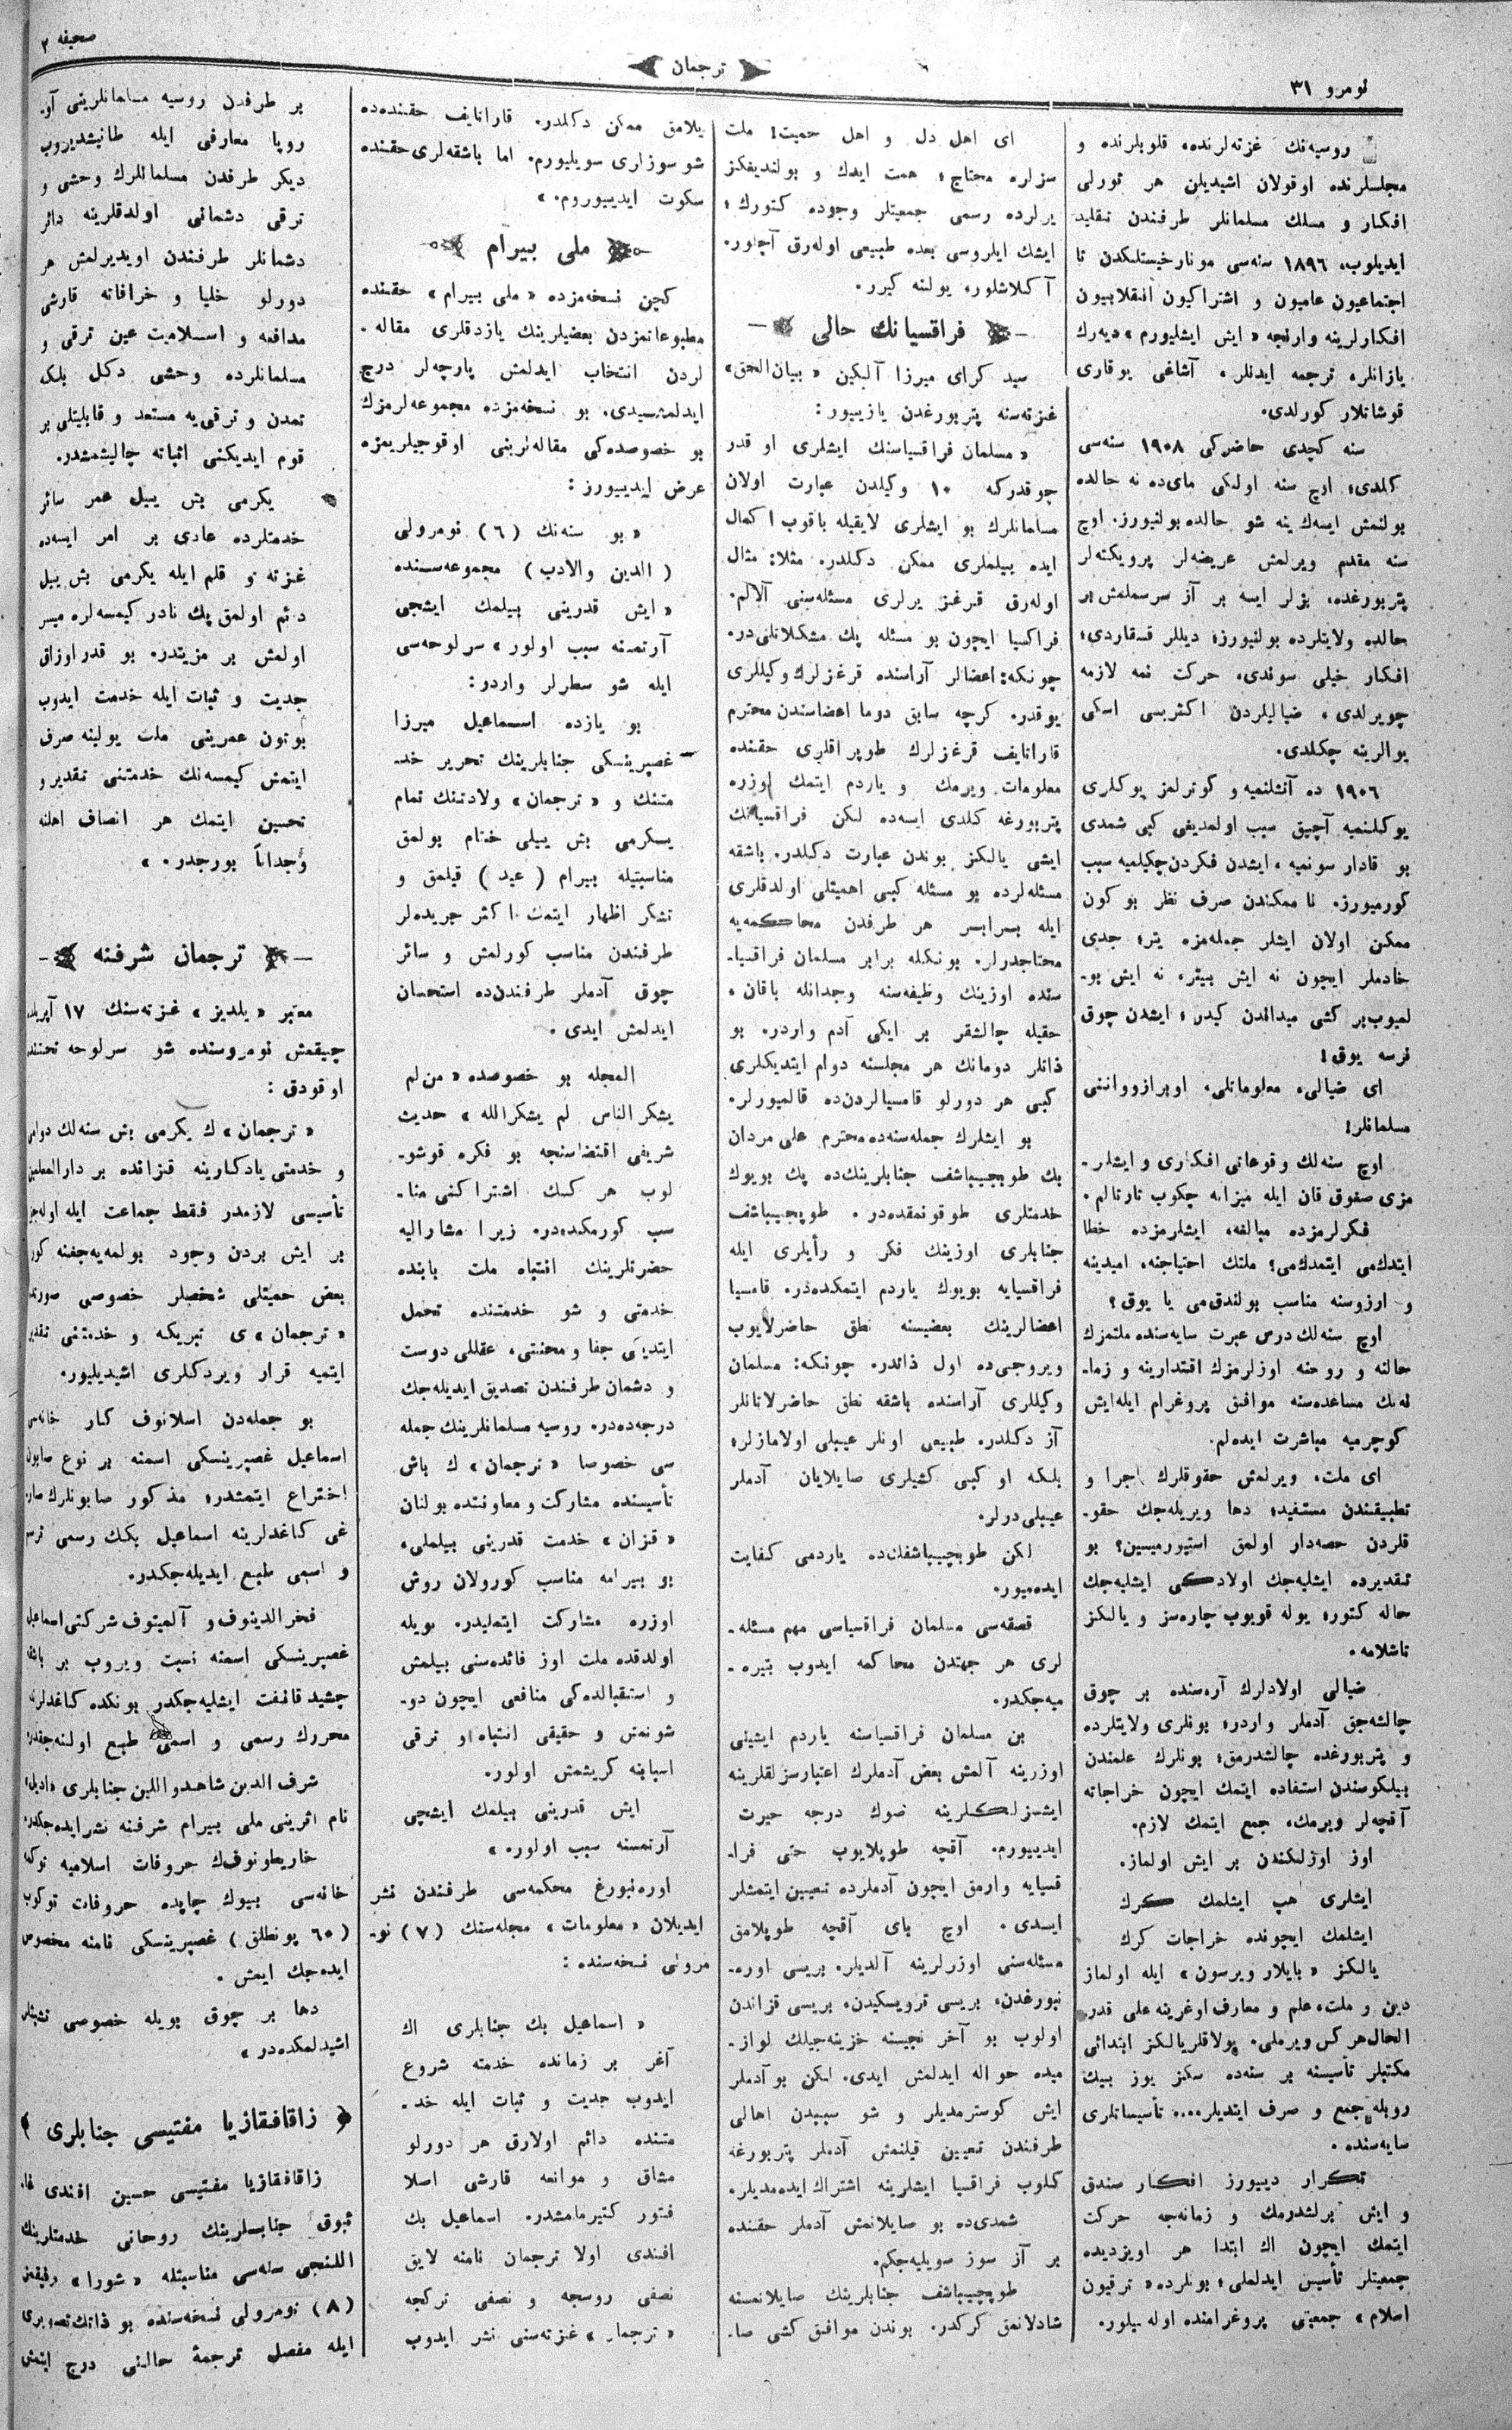 صحیفه ۲
ترجمان
نومرو ۳۱
روسیه‌نك غزته‌لرنده، قلوبلرنده و
مجلسلرنده اوقولان اشیدیلن هر تورلی
افکار و مسلك مسلمانلر طرفندن تقلید
ایدیلوب، ۱۸۹٦ سنه‌سی مونارخیستلکدن تا
اجتماعیون عامیون و اشتراکیون انقلابیون
افکارلرینه وارنجه «ایش ایشلیورم» دیه‌رك
یازانلر، ترجمه ایدنلر، آشاغی یوقاری
قوشانلار کورلدی.
سنه کچدی حاضرکی ۱۹۰۸ سنه‌سی
کلدی؛ اوچ سنه اولکی مای‌ده نه حالده
بولنمش ایسه‌ك ینه شو حالده بولنیورز. اوچ
سنه مقدم ویرلمش عریضه‌لر پرویکته‌لر
پتربورغده، بزلر ایسه بر آز سرسملمش بر
حالده ولایتلرده بولنیورز؛ دیللر قسقاردی؛
افکار خیلی سوندی، حرکت نمه لازمه
چویرلدی، ضیالیلردن اکثریسی اسکی
یوالرینه چکلدی.
۱۹۰٦ ده آتشلنمیه و کوترلمز یوکلری
یوکلنمیه آچیق سبب اولمدیغی کبی شمدی
بو قادار سونمیه، ایشدن فکردن چکیلمیه سبب
کورمیورز. نا ممکندن صرف نظر بو کون
ممکن اولان ایشلر جمله‌مزه یتر؛ جدی
خادملر ایچون نه ایش بیتر، نه ایش بو-
لمیوب‌بر کشی میداندن کیدر؛ ایشدن چوق
نرسه یوق!
ای ضیالی، معلوماتلی، اوبرازوواننی
مسلمانلر!
اوچ سنه‌لك وقوعاتی افکاری و ایشلر-
مزی صغوق قان ایله میزانه چکوب تارتالم.
فکرلرمزده مبالغه، ایشلرمزده خطا
ایتدك‌می ایتمدك‌می؟ ملتك احتیاجنه، امیدینه
و ارزوسنه مناسب بولندق‌می یا یوق؟
اوچ سنه‌لك درس عبرت سایه‌سنده ملتمزك
حالنه و روحنه اوزلرمزك اقتدارینه و زما-
نه‌نك مساعده‌سنه موافق پروغرام ایله‌ایش
کوچرمیه مباشرت ایده‌لم.
ای ملت، ویرلمش حقوقلرك اجرا و
تطبیقندن مستفید؛ دها ویریله‌جك حقو-
قلردن حصه‌دار اولمق استیورمیسین؟ بو
تقدیرده ایشلیه‌جك اولادکی ایشلیه‌جك
حاله کتور؛ یوله قویوب چاره‌سز و یالکز
تاشلامه.
ضیالی اولادلرك آره‌سنده بر چوق
چالشه‌جق آدملر واردر؛ بونلری ولایتلرده
و پتربورغده چالشدرمق؛ بونلرك علمندن
بیلکوسندن استفاده ایتمك ایچون خراجاته
آقچه‌لر ویرمك، جمع ایتمك لازم.
اوز اوزلکندن بر ایش اولماز.
ایشلری هپ ایشلمك کرك
ایشلمك ایچونده خراجات کرك
یالکز «بایلار ویرسون» ایله اولماز
دین و ملت، علم و معارف اوغرینه علی قدر
الحال هرکس ویرملی. پولاقلر یالکز ابتدائی
مکتبلر تأسیسنه بر سنه‌ده سکز یوز بیك
روبله جمع و صرف ایتدیلر.... تأسیساتلری
سایه‌سنده.
تکرار دیییورز افکار صندق
و ایش برلشدرمك و زمانه‌جه حرکت
ایتمك ایچون اك ابتدا هر اویزدیده
جمعیتلر تأسیس ایدلملی؛ بونلرده «ترقیون
اسلام» جمعیتی پروغرامنده اوله بیلور.
ای اهل دل و اهل حمیت! ملت
سزلره محتاج؛ همت ایدك و بولندیغکز
یرلرده رسمی جمعیتلر وجوده کتورك؛
ایشك ایلروسی بعده طبیعی اوله‌رق آچلور.
آکلاشلور، یولنه کیرر.
فراقسیانك حالی
سید کرای میرزا آلکین «بیان‌الحق»
غزته‌سنه پتربورغدن یازییور:
«مسلمان فراقسیاسنك ایشلری او قدر
چوقدرکه ۱۰ وکیلدن عبارت اولان
مسلمانلرك بو ایشلری لایقیله باقوب اکمال
ایده بیلملری ممکن دکلدر. مثلا: مثال
اوله‌رق قرغز یرلری مسئله‌سنی آلالم.
فراکسیا ایچون بو مسئله پك مشکلاتلی‌در.
چونکه: اعضالر آراسنده قرغزلرك وکیللری
یوقدر. کرچه سابق دوما اعضاسندن محترم
قاراتایف قرغزلرك طوپراقلری حقنده
معلومات ویرمك و یاردم ایتمك اوزره
پتربورغه کلدی ایسه‌ده لکن فراقسیانك
ایشی یالکز بوندن عبارت دکلدر. باشقه
مسئله‌لرده بو مسئله کبی اهمیتلی اولدقلری
ایله برابر هر طرفدن محاکمه‌یه
محتاجدرلر. بونکله برابر مسلمان فراقسیا-
سنده اوزینك وظیفه‌سنه وجدانله باقان،
حقیله چالشقر بر ایکی آدم واردر. بو
ذاتلر دومانك هر مجلسنه دوام ایتدیکلری
کبی هر دورلو قامسیالردن‌ده قالمیورلر.
بو ایشلرك جمله‌سنه‌ده محترم علی مردان
بك طوپچیباشف جنابلرینك‌ده پك بویوك
خدمتلری طوقونمقده‌در. طوپچیباشف
جنابلری اوزینك فکر و رأیلری ایله
فراقسیایه بویوك یاردم ایتمکده‌در. قامسیا
اعضالرینك بعضیسنه نطق حاضرلایوب
ویروجی‌ده اول ذاتدر. چونکه: مسلمان
وکیللری آراسنده باشقه نطق حاضرلاتانلر
آز دکلدر. طبیعی اونلر عیبلی اولامازلر؛
بلکه او کبی کشیلری صایلایان آدملر
عیبلی‌درلر.
لکن طوپچیباشفك‌ده یاردمی کفایت
ایده‌میور.
قصقه‌سی مسلمان فراقسیاسی مهم مسئله-
لری هر جهتدن محاکمه ایدوب بتیره-
میه‌جکدر.
بن مسلمان فراقسیاسنه یاردم ایشینی
اوزرینه آلمش بعض آدملرك اعتبارسزلقلرینه
ایشسزلکلرینه صوك درجه حیرت
ایدییورم. آقچه طوپلایوب حتی فرا-
قسیایه وارمق ایچون آدملرده تعیین ایتمشلر
ایسدی. اوچ بای آقچه طوپلامق
مسئله‌سنی اوزرلرینه آلدیلر. بریسی اوره-
نبورغدن، بریسی ترویسکیدن، بریسی قزاندن
اولوب بو آخر نجیسنه خزینه‌جیلك لواز-
میده حواله ایدلمش ایدی. لکن بو آدملر
ایش کوسترمدیلر و شو سببدن اهالی
طرفندن تعیین قیلنمش آدملر پتربورغه
کلوب فراقسیا ایشلرینه اشتراك ایده‌مدیلر.
شمدی‌ده بو صایلانمش آدملر حقنده
بر آز سوز سویلیه‌جکم.
طوپچیباشف جنابلرینك صایلانمسنه
شادلانمق کرکدر. بوندن موافق کشی صا-
یلامق ممکن دکلدر. قاراتایف حقنده‌ده
شو سوزلری سویلیورم. اما باشقه‌لری حقنده
سکوت ایدییوروم.»
ملی بیرام
کچن نسخه‌مزده «ملی بیرام» حقنده
مطبوعاتمزدن بعضیلرینك یازدقلری مقاله-
لردن انتخاب ایدلمش پارچه‌لر درج
ایدلمشیدی. بو نسخه‌مزده مجموعه‌لرمزك
بو خصوصده‌کی مقاله‌لرینی اوقوجیلریمزه
عرض ایدییورز:
«بو سنه‌نك (٦) نومرولی
(الدین والادب) مجموعه‌سنده
«ایش قدرینی بیلمك ایشچی
آرتمسنه سبب اولور» سرلوحه‌سی
ایله شو سطرلر واردر:
بو یازده اسماعیل میرزا
غصپرینسکی جنابلرینك تحریر خد-
متنك و «ترجمان» ولادتنك تمام
یکرمی بش ییلی ختام بولمق
مناسبتیله بیرام (عید) قیلمق و
تشکر اظهار ایتمك اکثر جریده‌لر
طرفندن مناسب کورلمش و سائر
چوق آدملر طرفندن‌ده استحسان
ایدلمش ایدی.
المجله بو خصوصده «من لم
یشکر الناس لم یشکرالله» حدیث
شریفی اقتضاسنجه بو فکره قوشو-
لوب هر کسك اشتراکنی منا-
سب کورمکده‌در. زیرا مشارالیه
حضرتلرینك انتباه ملت بابنده
خدمتی و شو خدمتنده تحمل
ایتدیکی جفا و محنتی، عقللی دوست
و دشمان طرفندن تصدیق ایدیله‌جك
درجه‌ده‌در. روسیه مسلمانلرینك جمله
سی خصوصا «ترجمان» ك باش
تأسیسنده مشارکت و معاونتده بولنان
«قزان» خدمت قدرینی بیلملی،
بو بیرامه مناسب کورولان روش
اوزره مشارکت ایتملیدر. بویله
اولدقده ملت اوز فائده‌سنی بیلمش
و استقبالده‌کی منافعی ایچون دو-
شونمش و حقیقی انتباه و ترقی
اسبابنه کریشمش اولور.
ایش قدرینی بیلمك ایشچی
آرتمسنه سبب اولور.»
اوره‌نبورغ محکمه‌سی طرفندن نشر
ایدیلان «معلومات» مجله‌سنك (۷) نو-
مرولی نسخه‌سنده:
«اسماعیل بك جنابلری اك
آغر بر زمانده خدمته شروع
ایدوب جدیت و ثبات ایله خد-
متنده دائم اولارق هر دورلو
مشاق و موانعه قارشی اصلا
فتور کتیرمامشدر. اسماعیل بك
افندی اولا ترجمان نامنه لایق
نصفی روسجه و نصفی ترکجه
«ترجمان» غزته‌سنی نشر ایدوب
بر طرفدن روسیه مسلمانلرینی آو-
روپا معارفی ایله طانیشدیروب
دیکر طرفدن مسلمانلرك وحشی و
ترقی دشمانی اولدقلرینه دائر
دشمانلر طرفندن اویدیرلمش هر
دورلو خلیا و خرافاته قارشی
مدافعه و اسلامیت عین ترقی و
مسلمانلرده وحشی دکل بلکه
تمدن و ترقی‌یه مستعد و قابلیتلی بر
قوم ایدیکنی اثباته چالیشمشدر.
یکرمی بش ییل عمر سائر
خدمتلرده عادی بر امر ایسه‌ده
غزته و قلم ایله یکرمی بش ییل
دئم اولمق پك نادر کیمسه‌لره میسر
اولمش بر مزیتدر. بو قدر اوزاق
جدیت و ثبات ایله خدمت ایدوب
بوتون عمرینی ملت یولینه صرف
ایتمش کیمسه‌نك خدمتنی تقدیر و
تحسین ایتمك هر انصاف اهلنه
وجداناً بورجدر.»
ترجمان شرفنه
معتبر «یلدیز» غزته‌سنك ۱۷ آپریلده
چیقمش نومروسنده شو سرلوحه تحتنده
اوقودق:
«ترجمان» ك یکرمی بش سنه‌لك دوامی
و خدمتی یادکارینه قزانده بر دارالمعلمین
تأسیسی لازمدر فقط جماعت ایله اوله‌جق
بر ایش بردن وجود بولمه‌یه‌جغنه کوره
بعض حمیتلی شخصلر خصوصی صورتده
«ترجمان» ی تبریکه و خدمتنی تقدیر
ایتمیه قرار ویردکلری اشیدیلیور.
بو جمله‌دن اسلانوف کار خانه‌سی
اسماعیل غصپرینسکی اسمنه بر نوع صابون
اختراع ایتمشدر؛ مذکور صابونلرك صارو
غی کاغدلرینه اسماعیل بکك رسمی ترسم
و اسمی طبع ایدیله‌جکدر.
فخرالدینوف و آلمیتوف شرکتی اسماعیل
غصپرینسکی اسمنه نسبت ویروب بر باشقه
چشید قانفت ایشلیه‌جکدر بونکده کاغدلرنه
محررك رسمی و اسمی طبع اولنه‌جقدر.
شرف الدین شاهدواللین جنابلری «ادیل»
نام اثرینی ملی بیرام شرفنه نشر ایده‌جکدر.
خاریطونوف‌ك حروفات اسلامیه توکمه
خانه‌سی بیوك چاپده حروفات توکوب
(٦۰ پونطلق) غصپرینسکی نامنه مخصوص
ایده‌جك ایمش.
دها بر چوق بویله خصوصی تشبثلر
اشیدلمکده‌در»
زاقافقازیا مفتیسی جنابلری
زاقافقازیا مفتیسی حسین افندی غا-
ئبوف جنابلرینك روحانی خدمتلرینك
اللنجی سنه‌سی مناسبتله «شورا» رفیقمز
(۸) نومرولی نسخه‌سنده بو ذاتك تصویری
ایله مفصل ترجمهٔ حالنی درج ایتمش